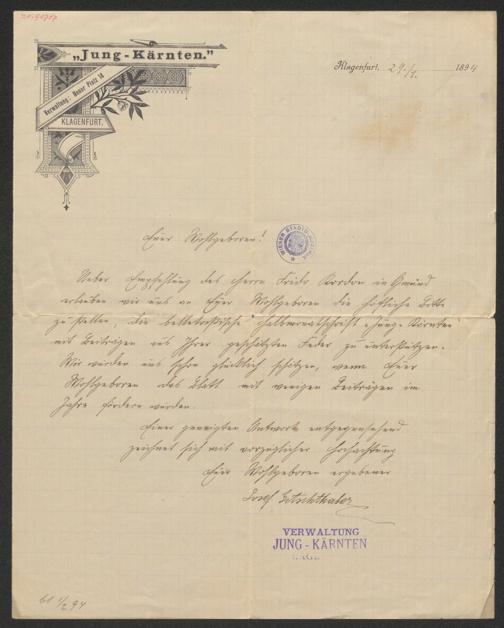 „Jung-Kärnten."
Verwaltung: Neuer Platz 14
KLAGENFURT.
Klagenfurt, 29./1. 1894
Euer Wohlgeboren!
Ueber Empfehlung des Herrn Frido Kordon in Gmünd
erlauben wir uns an Euer Wohlgeboren die höfliche Bitte
zu stellen, die belletristische Halbmonatschrift „Jung-Kärnten"
mit Beiträgen aus Ihrer geschätzten Feder zu unterstützen.
Wir würden uns schon glücklich schätzen, wenn Euer
Wohlgeboren das Blatt mit wenigen Beiträgen im
Jahre fördern würden.
Einer geneigten Antwort entgegensehend
zeichnet sich mit vorzüglicher Hochachtung
Euer Wohlgeboren ergebener
Josef
VERWALTUNG
JUNG-KÄRNTEN